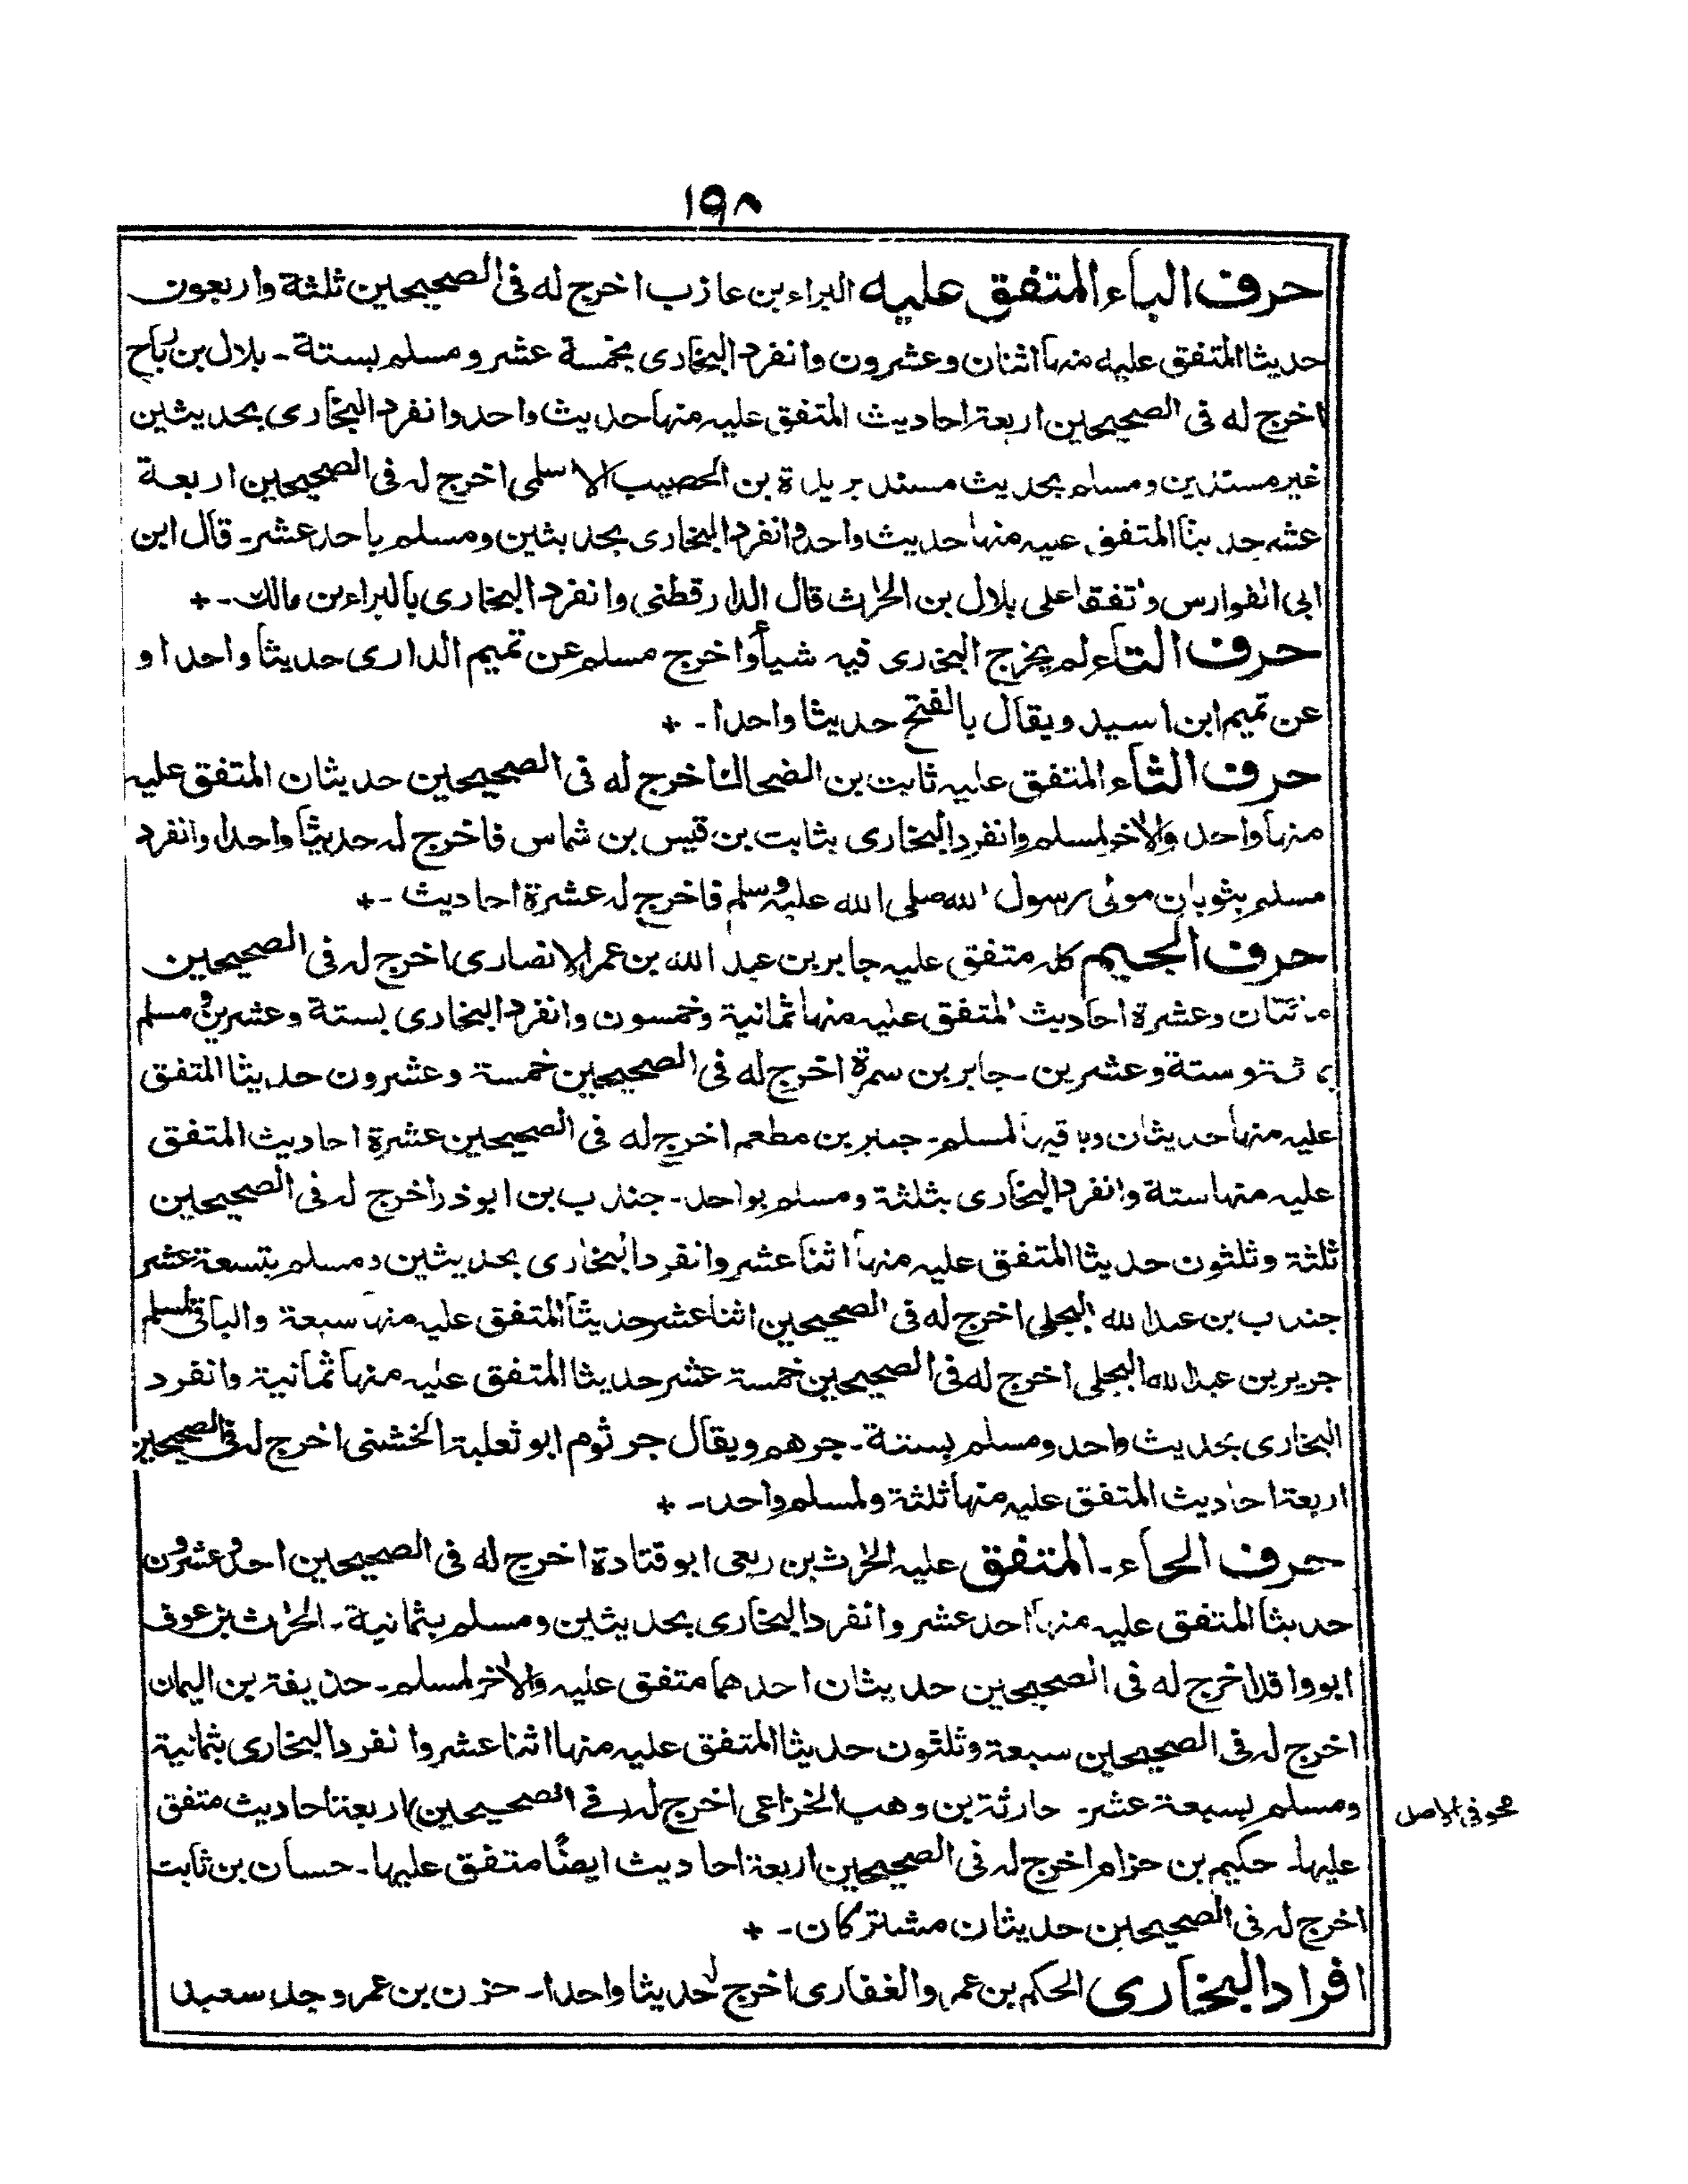 ١٩٨
حرف الباء المتفق عليه البراء بن عازب اخرج له فى الصحيحين ثلثة واربعون
حديثا المتفق عليه منها اثنان وعشرون وانفرد البخارى بخمسة عشر ومسلم بستة ـ بلال بن رباح
اخرج له فى الصحيحين اربعة احاديث المتفق عليه منها حديث واحد وانفرد البخارى بحديثين
غير مستندين ومسلم بحديث مسند بريدة بن الحصيب الاسلمى اخرج له فى الصحيحين اربعة
عشر حديثا المتفق عليه منها حديث واحد وانفرد البخارى بحديثين ومسلم باحد عشر ـ قال ابن
ابى الفوارس واتفقا على بلال بن الحرث قال الدارقطنى وانفرد البخارى بالبراء بن مالك ـ +
حرف التاء لم يخرج البخارى فيه شيأ واخرج مسلم عن تميم الدارى حديثا واحدا و
عن تميم ابن اسيد ويقال بالفتح حديثا واحدا ـ +
حرف الثاء المتفق عليه ثابت بن الضحاك اخرج له فى الصحيحين حديثان المتفق عليه
منها واحد والاخر لمسلم وانفرد البخارى بثابت بن قيس بن شماس فاخرج له حديثا واحدا وانفرد
مسلم بثوبان مولى رسول الله صلى الله عليه وسلم فاخرج له عشرة احاديث ـ +
حرف الجيم كله متفق عليه جابر بن عبد الله بن عمر الانصارى اخرج له فى الصحيحين
مائتان وعشرة احاديث المتفق عليه منها ثمانية وخمسون وانفرد البخارى بستة وعشرين ومسلم
بمائة وستة وعشرين ـ جابر بن سمرة اخرج له فى الصحيحين خمسة وعشرون حديثا المتفق
عليه منها حديثان وباقيها لمسلم ـ جبير بن مطعم اخرج له فى الصحيحين عشرة احاديث المتفق
عليه منها ستة وانفرد البخارى بثلثة ومسلم بواحد ـ جندب بن ابوذر اخرج له فى الصحيحين
ثلثة وثلثون حديثا المتفق عليه منها اثنا عشر وانفرد البخارى بحديثين ومسلم بتسعة عشر
جندب بن عبد الله البجلى اخرج له فى الصحيحين اثنا عشر حديثا المتفق عليه منها سبعة والباقى لمسلم
جرير بن عبد الله البجلى اخرج له فى الصحيحين خمسة عشر حديثا المتفق عليه منها ثمانية وانفرد
البخارى بحديث واحد ومسلم بستة ـ جرهم ويقال جرثوم ابو ثعلبة الخشنى اخرج له فى الصحيحين
اربعة احاديث المتفق عليه منها ثلثة ولمسلم واحد ـ +
حرف الحاء ـ المتفق عليه الحرث بن ربعى ابو قتادة اخرج له فى الصحيحين احد وعشرون
حديثا المتفق عليه منها احد عشر وانفرد البخارى بحديثين ومسلم بثمانية ـ الحرث بن عوف
ابو واقد اخرج له فى الصحيحين حديثان احدهما متفق عليه والاخر لمسلم ـ حذيفة بن اليمان
اخرج له فى الصحيحين سبعة وثلثون حديثا المتفق عليه منها اثنا عشر وانفرد البخارى بثمانية
ومسلم بسبعة عشر ـ حارثة بن وهب الخزاعى اخرج له (فے الصحيحين) اربعة احاديث متفق
محو فى الاصل
عليها ـ حكيم بن حزام اخرج له فى الصحيحين اربعة احاديث ايضًا متفق عليها ـ حسان بن ثابت
اخرج له فى الصحيحين حديثان مشتركان ـ +
افراد البخارى الحكم بن عمرو الغفارى اخرج له حديثا واحدا ـ حزن بن عمرو جد سعيد